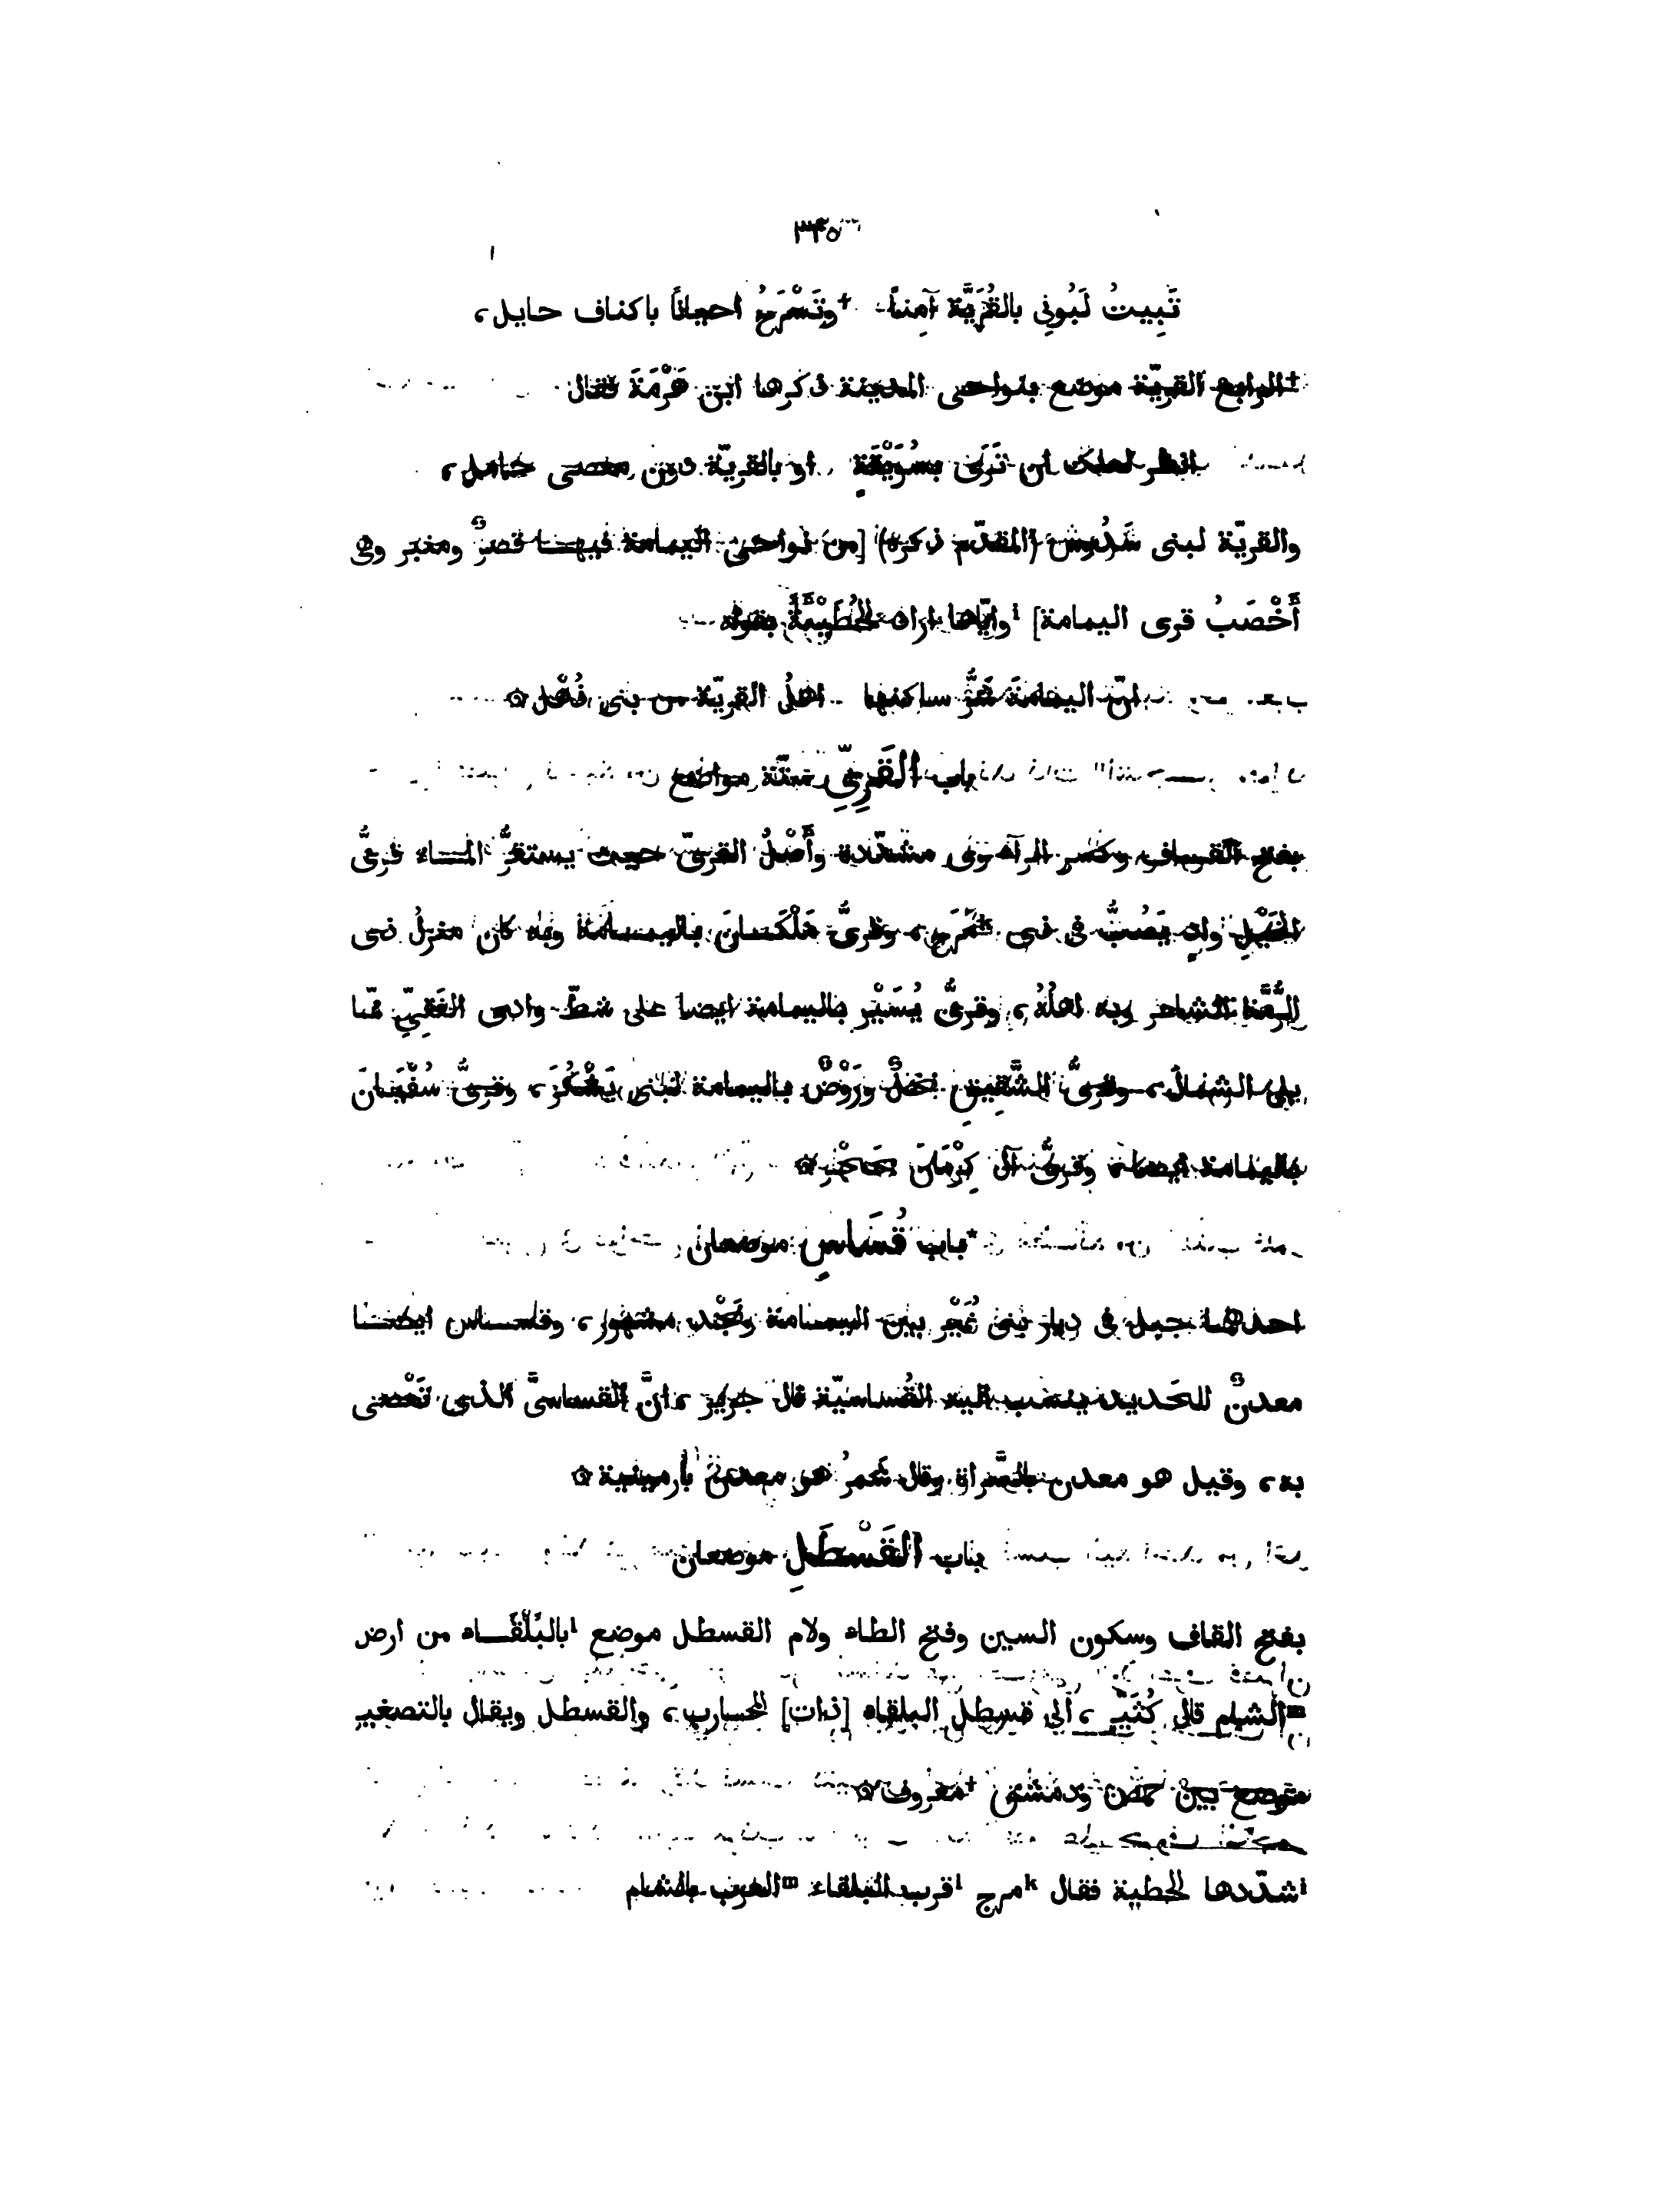 ٣٤٥
تَبِيتُ لَبُونِى بالقُرَيَّة آمِناً † وتَسْرَحُ احيانًا باكناف حايل،
† الرابع القريّة موضع بنواحى المدينة ذكرها ابن هَرْمَةَ فقال
انظر لعلك ان تَرَى بسُوَيْقَةٍ او بالقريّة دون مفضى عاقل،
والقريّة لبنى سَدُوس (المقدّم ذكره) [من نواحى اليمامة فيها قصرٌ ومنبر وهى
أَخْصَبُ قرى اليمامة] i وايّاها اراد الحُطَيْئَةُ بقوله
انّ اليمامةَ شَرُّ ساكنها اهلُ القريّة من بنى ذُهْل ۞
باب القَرِىِّ ستّة مواضع
بفتح القاف وكسر الرآء وى مشدّدة وأَصْلُ القرىّ حيث يستقرُّ المــاء قرىُّ
الخَيْلِ وادٍ يَصُبُّ فى ذى k مَرَخ، وقرىُّ مَلْكَــانَ باليمــامة وبه كان منزلُ ذى
الرُّمَّة الشاعر وبه اهلُهُ، وقرىُّ يُسَيْر باليمامة ايضا على شطّ وادى الفَقِىِّ ممّا
يلى الشمال، وقرىُّ الشَّقِيقِ نخلٌ ورَوْضٌ باليمامة لبنى يَشْكُرَ، وقرىُّ سُفَيَــانَ
باليمامة ايضا، وقرىُّ آل كِرْمَانَ بحَجْرٍ ۞
* باب قُسَاسٍ موضعان
احدهما جبل فى ديار بنى نُمَيْر بين اليمــامة ونَجْد مشهور، وقســاس ايضــا
معدنٌ للحَديد ينسب اليه القُساسيّة قال جرير، انَّ القساسىَّ الذى تَعْصى
به، وقيل هو معدن بالسَّراة وقال شَمِرُ هو معدن بأرمينية ۞
باب القَسْطَلِ موضعان
بفتح القاف وسكون السين وفتح الطاء ولام القسطل موضع l بالبَلْقــاء من ارض
m الشام قال كُثَيّر، الى قسطل البلقاء [ذات] المحــارب، والقسطل ويقال بالتصغير
موضع بين حمص ودمشق † معروف ۞
i شدّدها الحطية فقال k مرج l قرب البلقاء m العرب بالشام